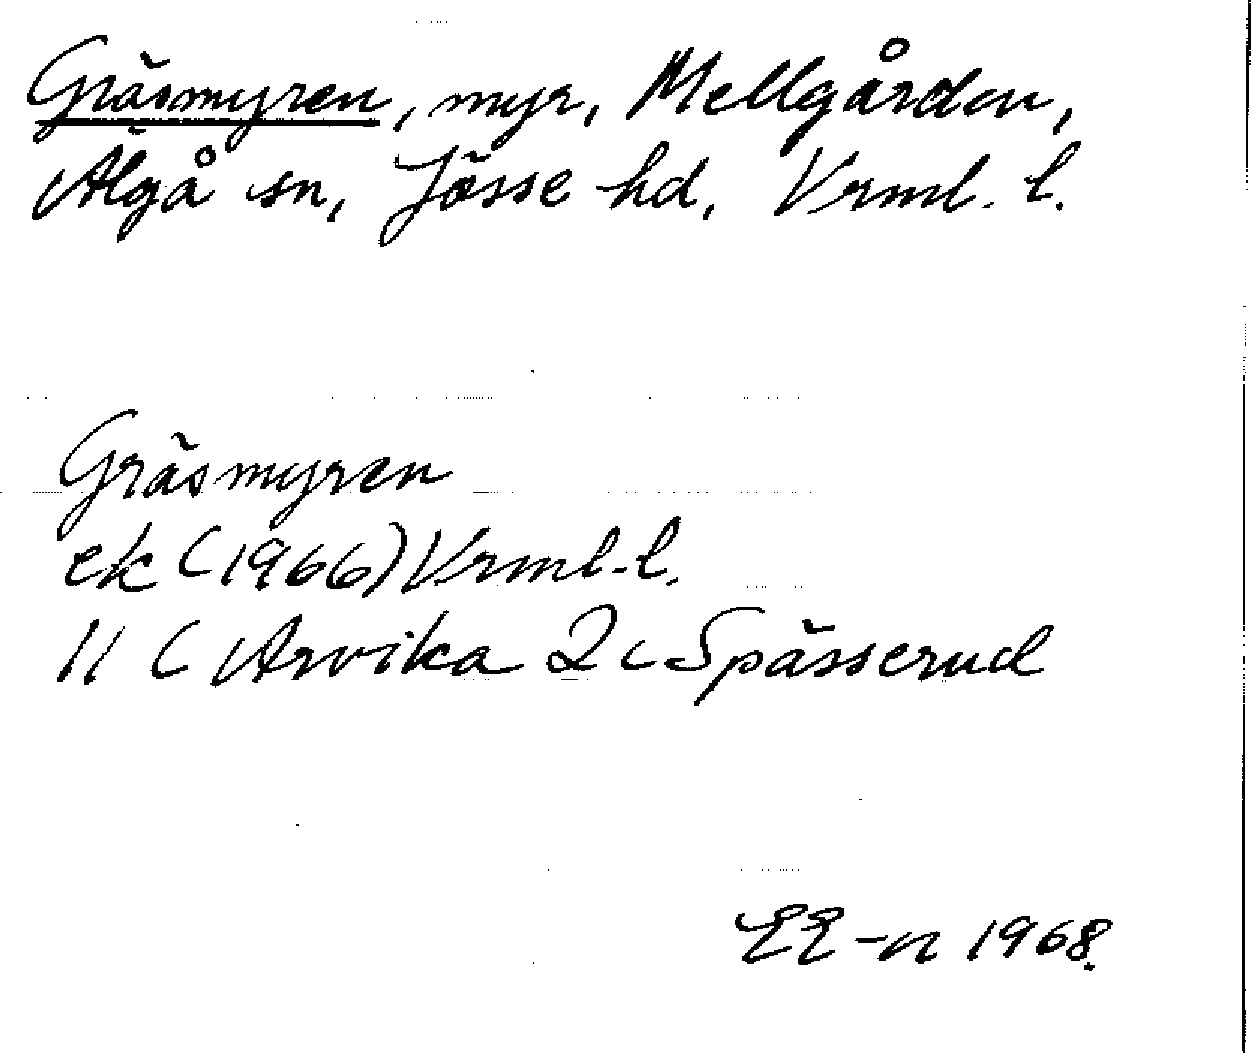 Gräsmyren, myr, Mellgården,
Älgå sn, Jösse hd, Vrml. l.
Gräsmyren
ek (1966) Vrml. l.
11 C Arvika 2c Spässerud
EE-n 1968.